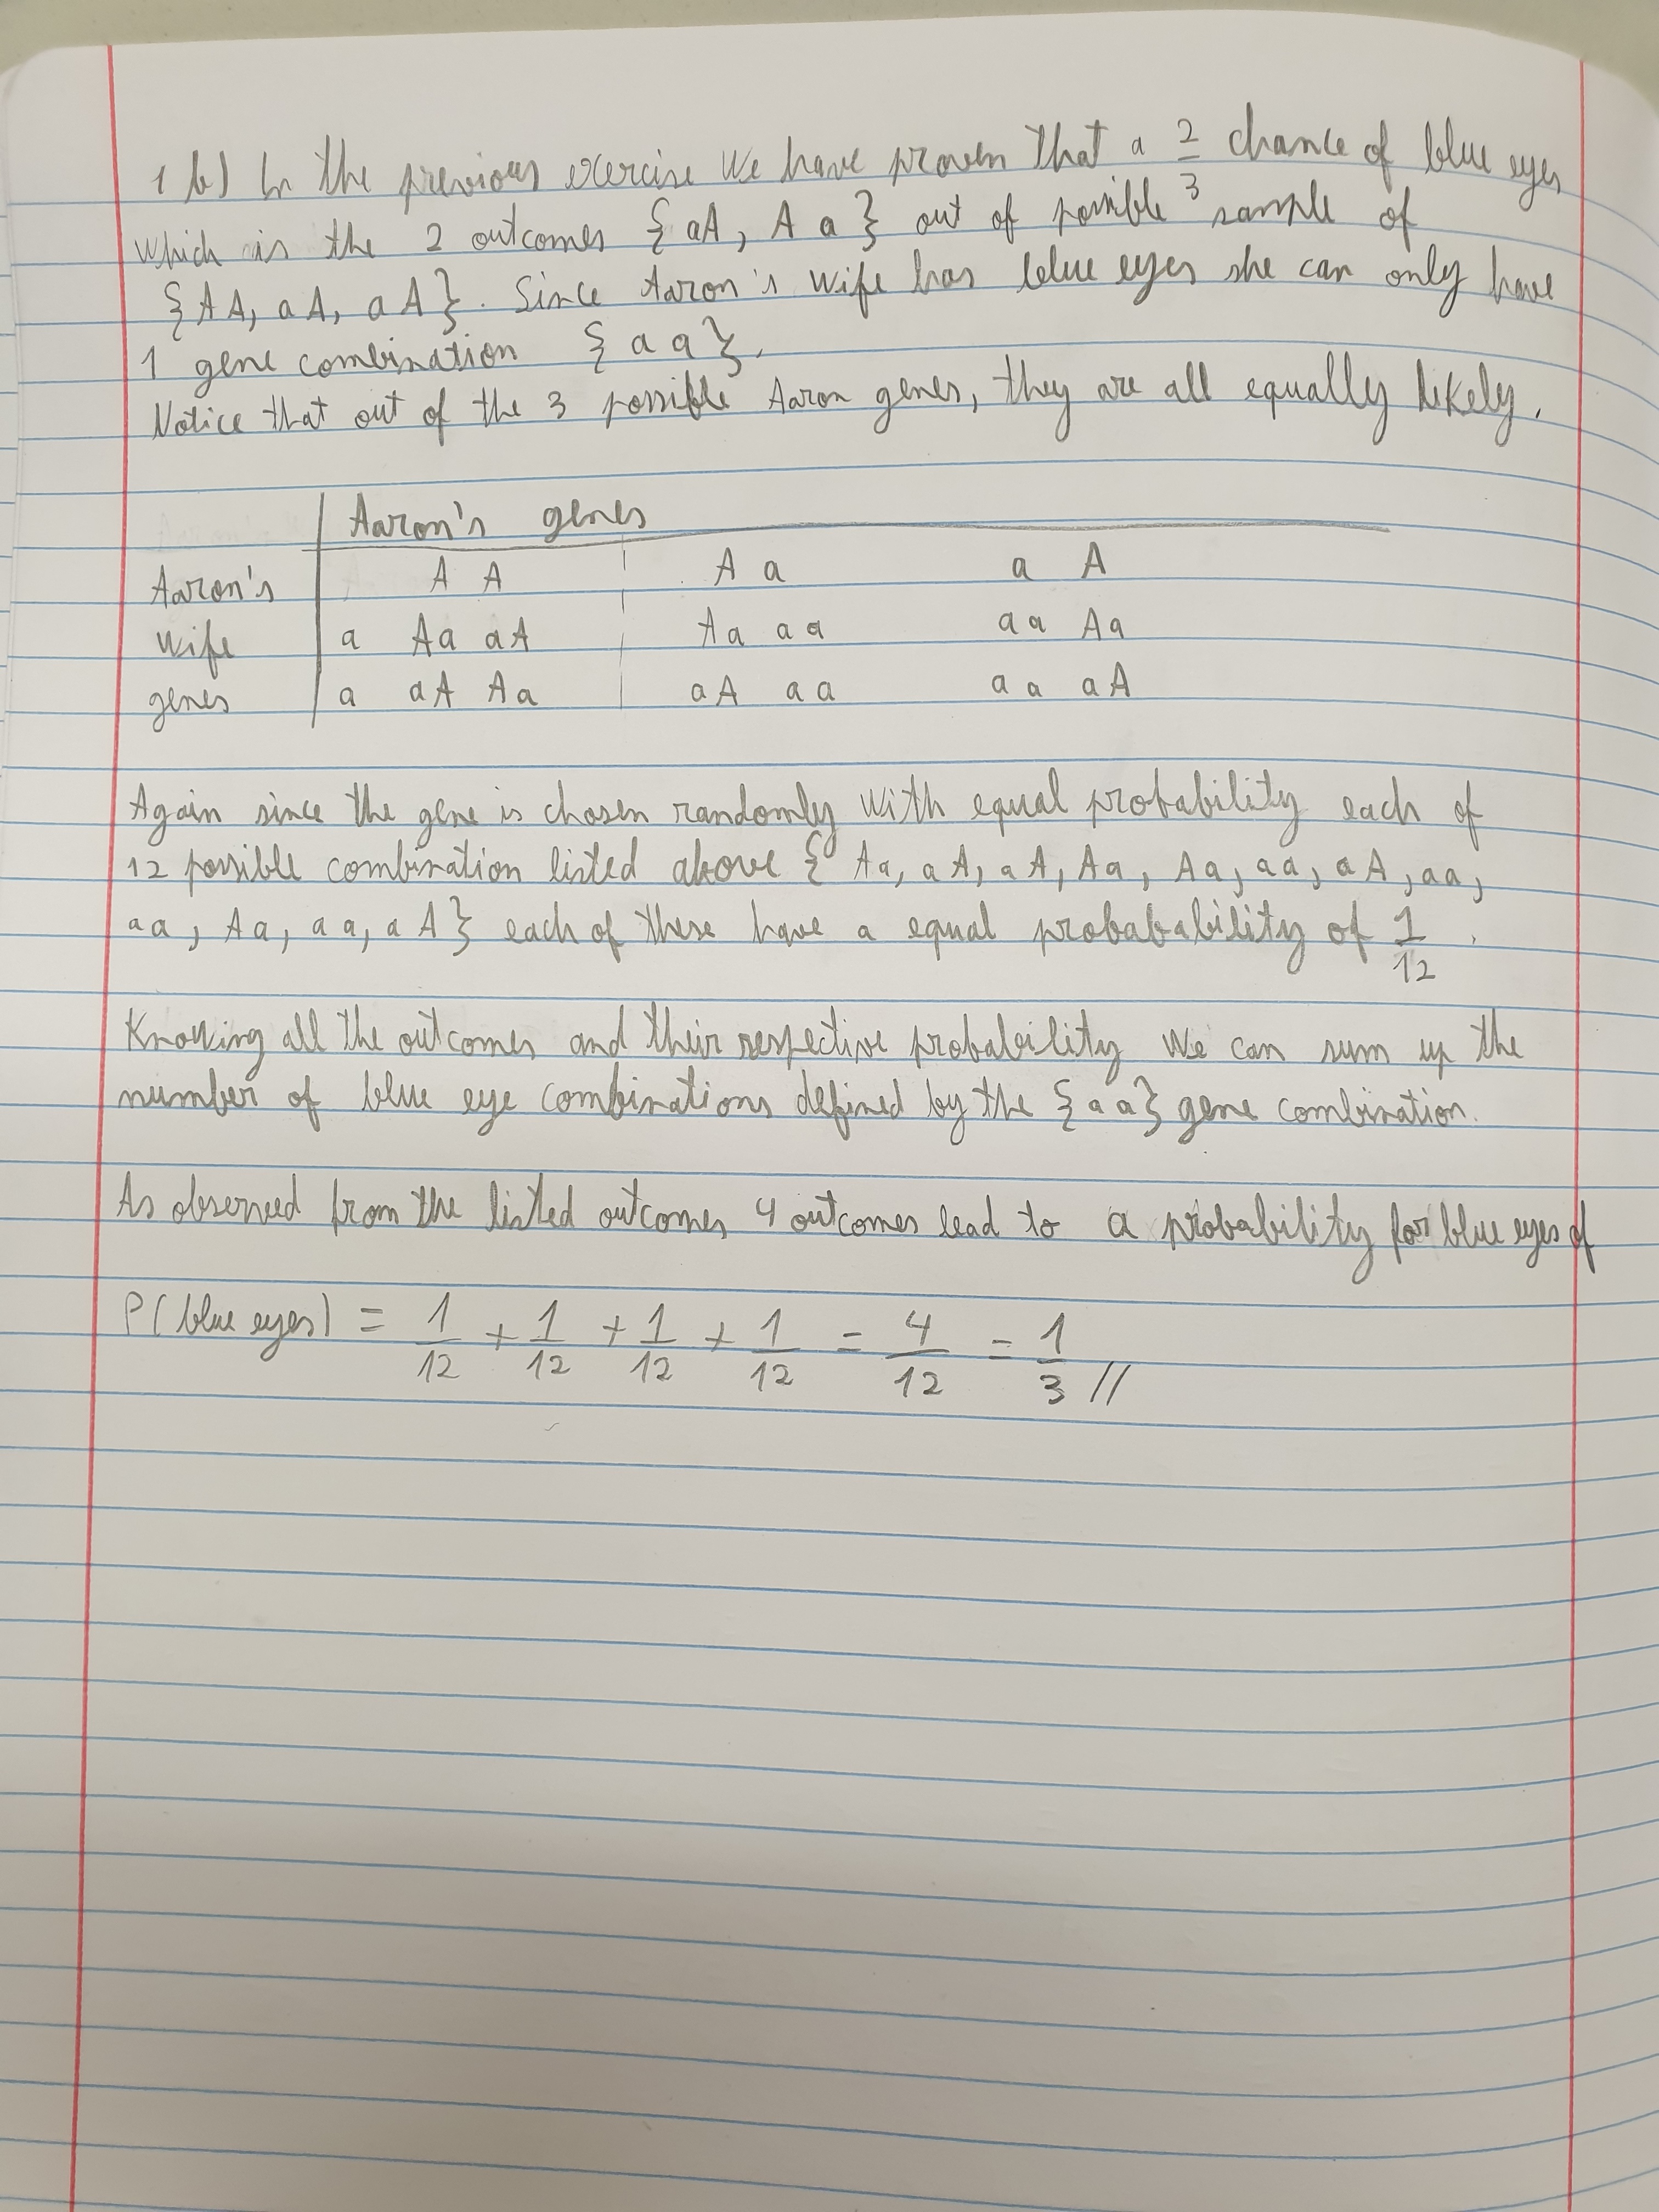 1 b) In the previous exercise we have proven that a 2/3 chance of blue eyes
which is the 2 outcomes {aA, A a} out of possible sample of
{AA, aA, aA}. Since Aaron's wife has blue eyes she can only have
1 gene combination {a a}.
Notice that out of the 3 possible Aaron genes, they are all equally likely.
Aaron's genes
Aaron's A A A a a A
wife a Aa aA Aa aa aa Aa
genes a aA Aa aA aa aa aA
Again since the gene is chosen randomly with equal probability each of
12 possible combination listed above { Aa, aA, aA, Aa, Aa, aa, aA, aa,
aa, Aa, aa, aA} each of these have a equal probabability of 1/12.
Knowing all the outcomes and their respective probability we can sum up the
number of blue eye combinations defined by the {aa} gene combination.
As observed from the listed outcomes 4 outcomes lead to a probability for blue eyes of
P(blue eyes) = 1/12 + 1/12 + 1/12 + 1/12 = 4/12 = 1/3 //